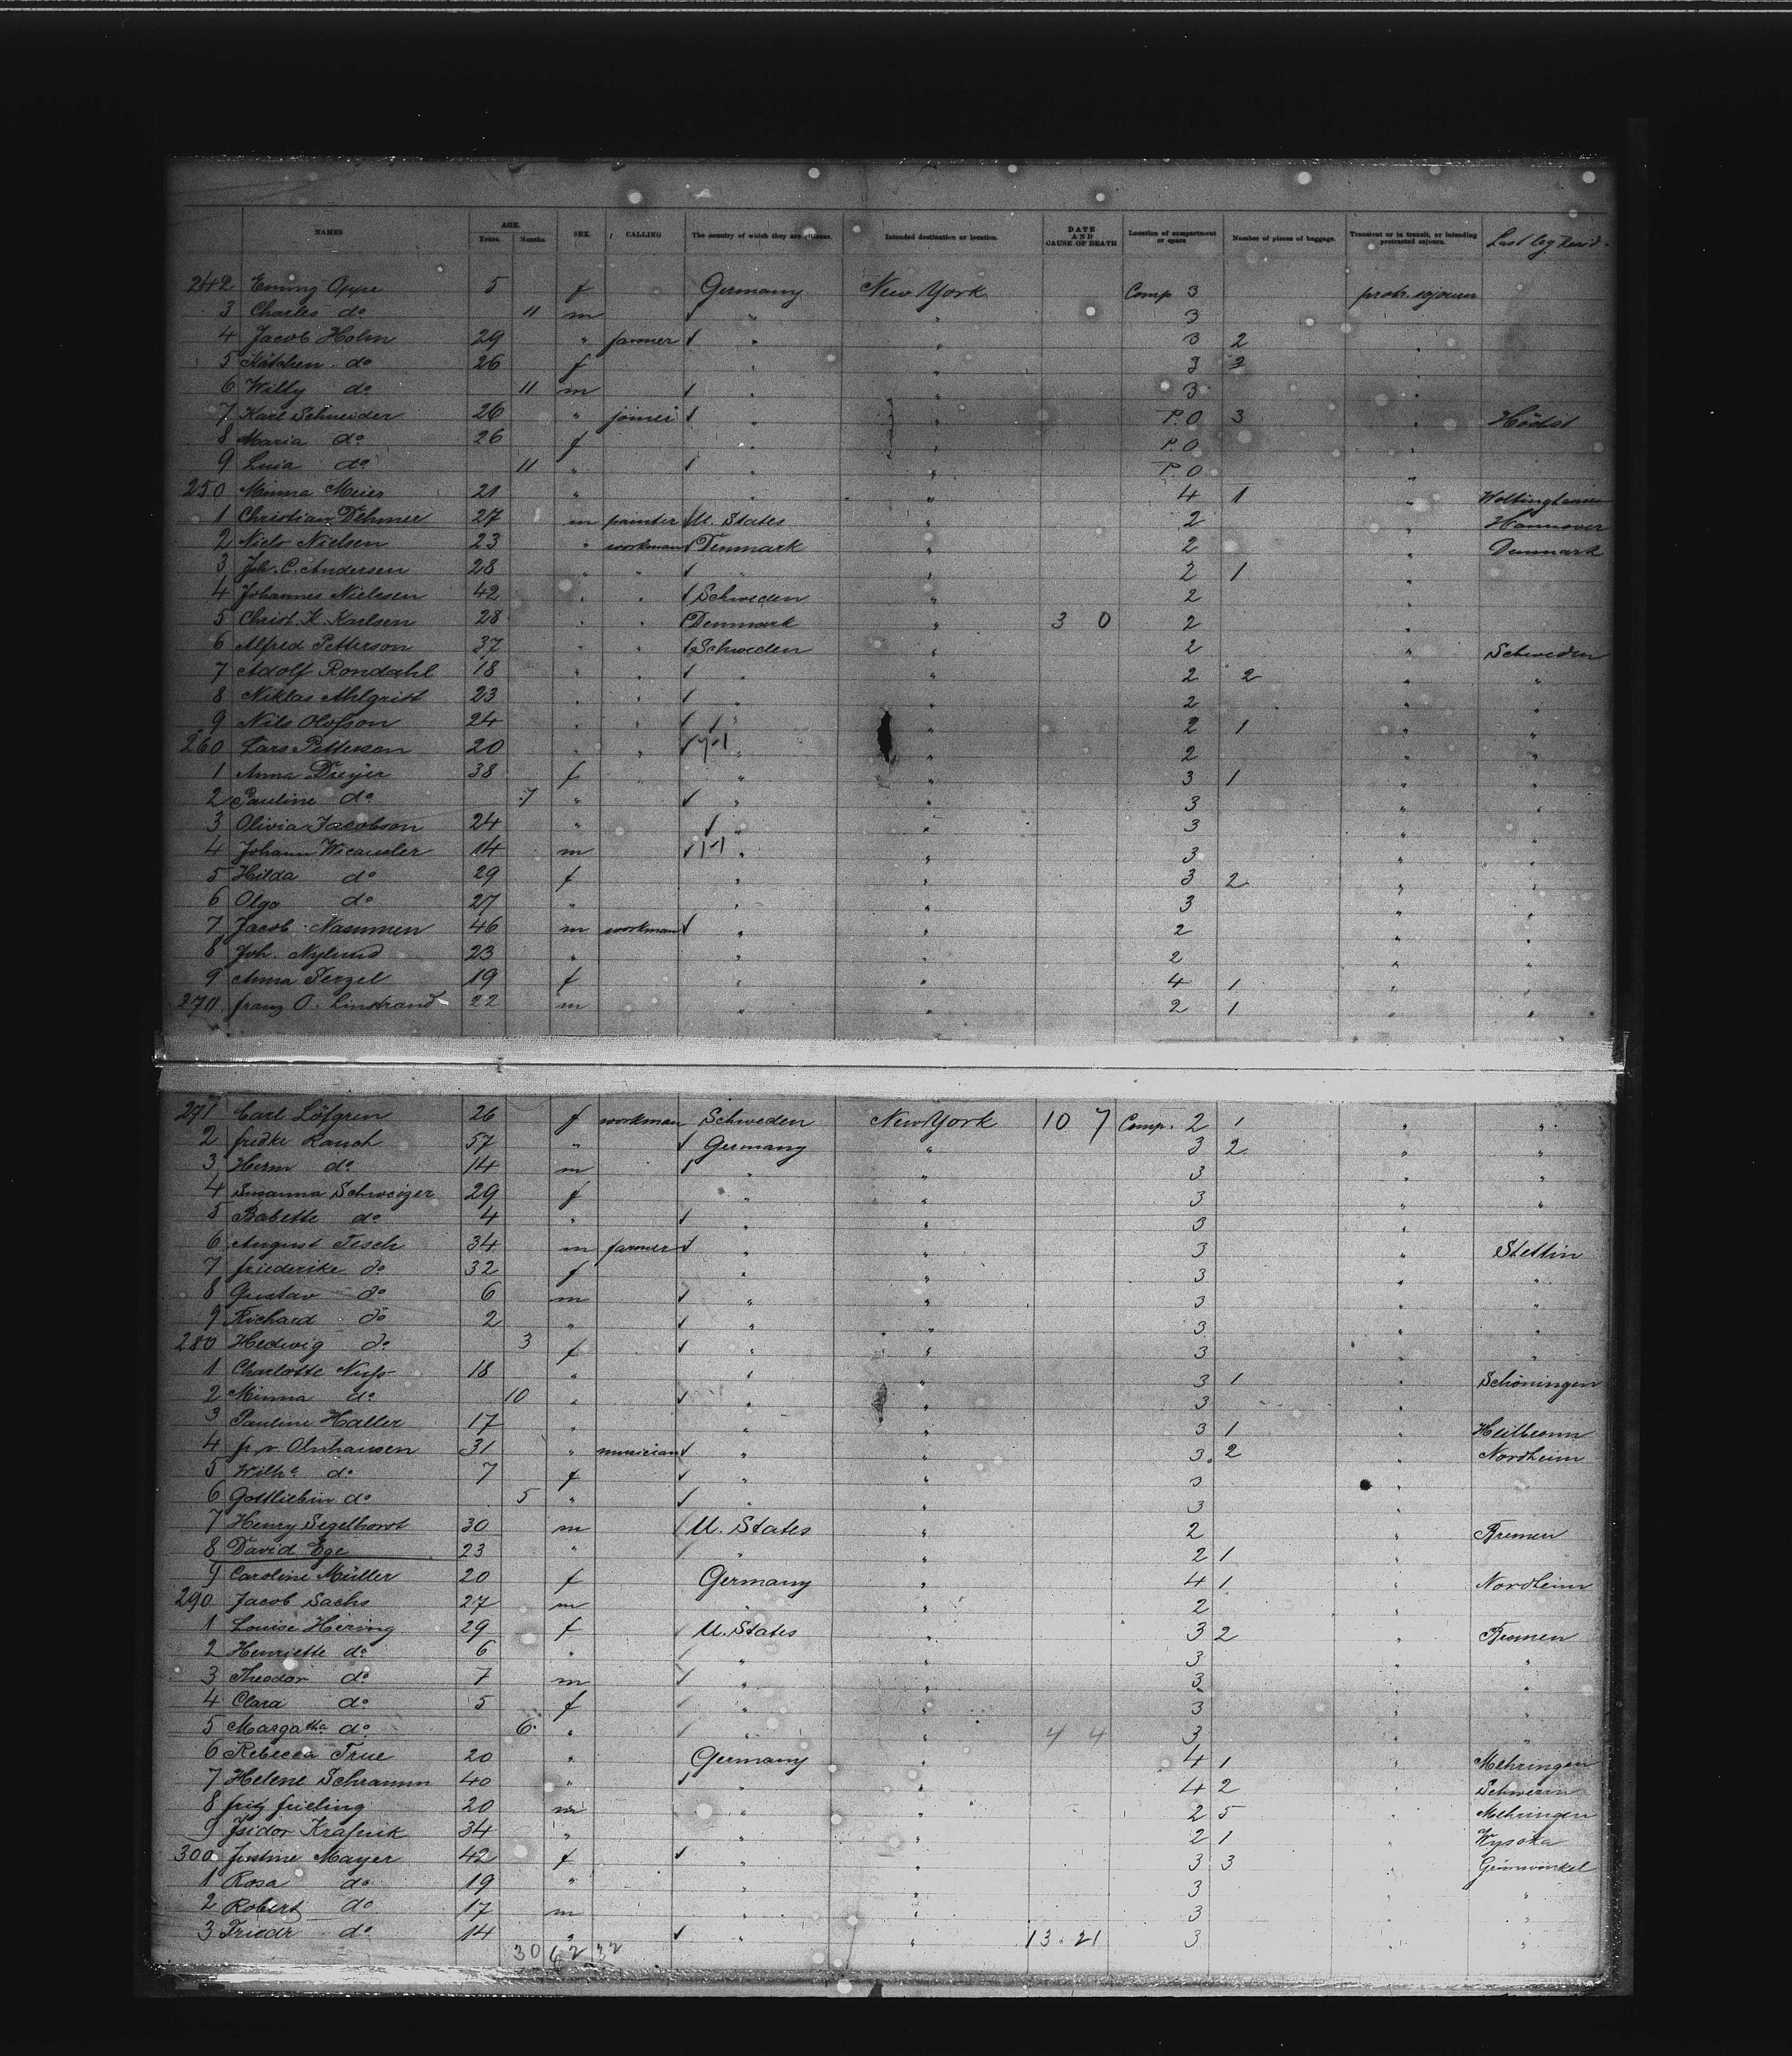 NAMES AGE. Years. Months SEX. CALLING The country of which they are citizens. Intended destination or location. DATE AND CAUSE OF DEATH Location of compartment or space Number of pieces of baggage. Transient or in transit, or intending protracted sojourn. Last leg. Resid.
242 Emmy Oppe 5 f Germany New York Comp 3 protr. sojourn
3 Charles do 11 m " " 3
4 Jacob Holm 29 " farmer " " 3 2 "
5 Kätchen do 26 f " " 3 2 "
6 Willy do 11 m " " 3 "
7 Karl Schneider 26 " joiner " " P.O 3 "
8 Maria do 26 f " " P.O "
9 do 11 " " " P.O "
250 Minna Meier 21 " " " 4 1 "
1 Christian Dehmer 27 m painter U. States " 2 " Hannover
2 Niels Nielsen 23 " workman Denmark " 2 " Denmark
3 Joh. C. Andersen 28 " " " " 2 1 "
4 Johannes Nielesen 42 " " Schweden " 2 "
5 Christ. K. Karlsen 28 " " Denmark " 3 0 2 "
6 Alfred Petterson 37 " " Schweden " 2 " Schweden
7 Adolf Rondahl 18 " " " " 2 2 " "
8 Niklas Ahlgrist 23 " " " " 2 " "
9 Nils Olofson 24 " " " " 2 1 " "
260 Lars Petterson 20 " " " " 2 " "
1 Anna Dreyer 38 f " " 3 1 " "
2 Pauline do 7 " " " 3 " "
3 Olivia Jacobson 24 " " " 3 " "
4 Johann 14 m " " 3 " "
5 Hilda do 29 f " " 3 2 " "
6 Olga do 27 " " " 3 " "
7 Jacob Nasmmen 46 m workman " " 2 " "
8 Joh. Nylund 23 " " " 2 " "
9 Anna Perzel 19 f " " 4 1 " "
270 Franz O. Linstrand 22 m " " 2 1 " "
271 Carl Löfgren 26 f workman Schweden New York 10 7 Comp. 2 1 " "
2 Fredke Rauch 57 " Germany " 3 2 " "
3 Herm do 14 m " " 3 " "
4 Susanna Schweizer 29 f " " 3 " "
5 Babette do 4 " " " 3 "
6 August Tesch 34 m farmer " " 3 " Stettin
7 Friederike do 32 f " " 3 " "
8 Gustav do 6 m " " 3 " "
9 Richard do 2 " " " 3 " "
280 Hedwig do 3 f " " 3 " "
1 Charlotte Nuss 18 " " " 3 1 " Schöningen
2 Minna do 10 " " " 3 "
3 Pauline Haller 17 " " " 3 1 " Heilbronn
4 Fr. v. Olnhausen 31 " musician " " 3 2 " Nordheim
5 Wilhe do 7 f " " 3 "
6 Gottliebin do 5 " " " 3 "
7 Henry Segelhorst 30 m U. States " 2 " Bremen
8 David Ege 23 " " " 2 1 "
9 Caroline Müller 20 f Germany " 4 1 " Nordheim
290 Jacob Sachs 27 m " " 2 "
1 Louise Hering 29 f U. States " 3 2 " Bremen
2 Henriette do 6 " " " 3 " "
3 Theodor do 7 m " " 3 " "
4 Clara do 5 f " " 3 " "
5 Margatha do 6 " " " 4 4 3 " "
6 Rebecca True 20 " Germany " 4 1 " Mehringen
7 Helene Schramm 40 " " " 4 2 " Schwerin
8 Fritz Frieling 20 m " " 2 5 " Mehringen
9 Isidor 34 " " " 2 1 " Wysoka
300 Justine Mayer 42 f " " 3 3 " Grünwinkel
1 Rosa do 19 " " " 3 " "
2 Robert do 17 m " " 3 " "
3 Friedr do 14 " " " 13 . 21 3 " "
30 62 32